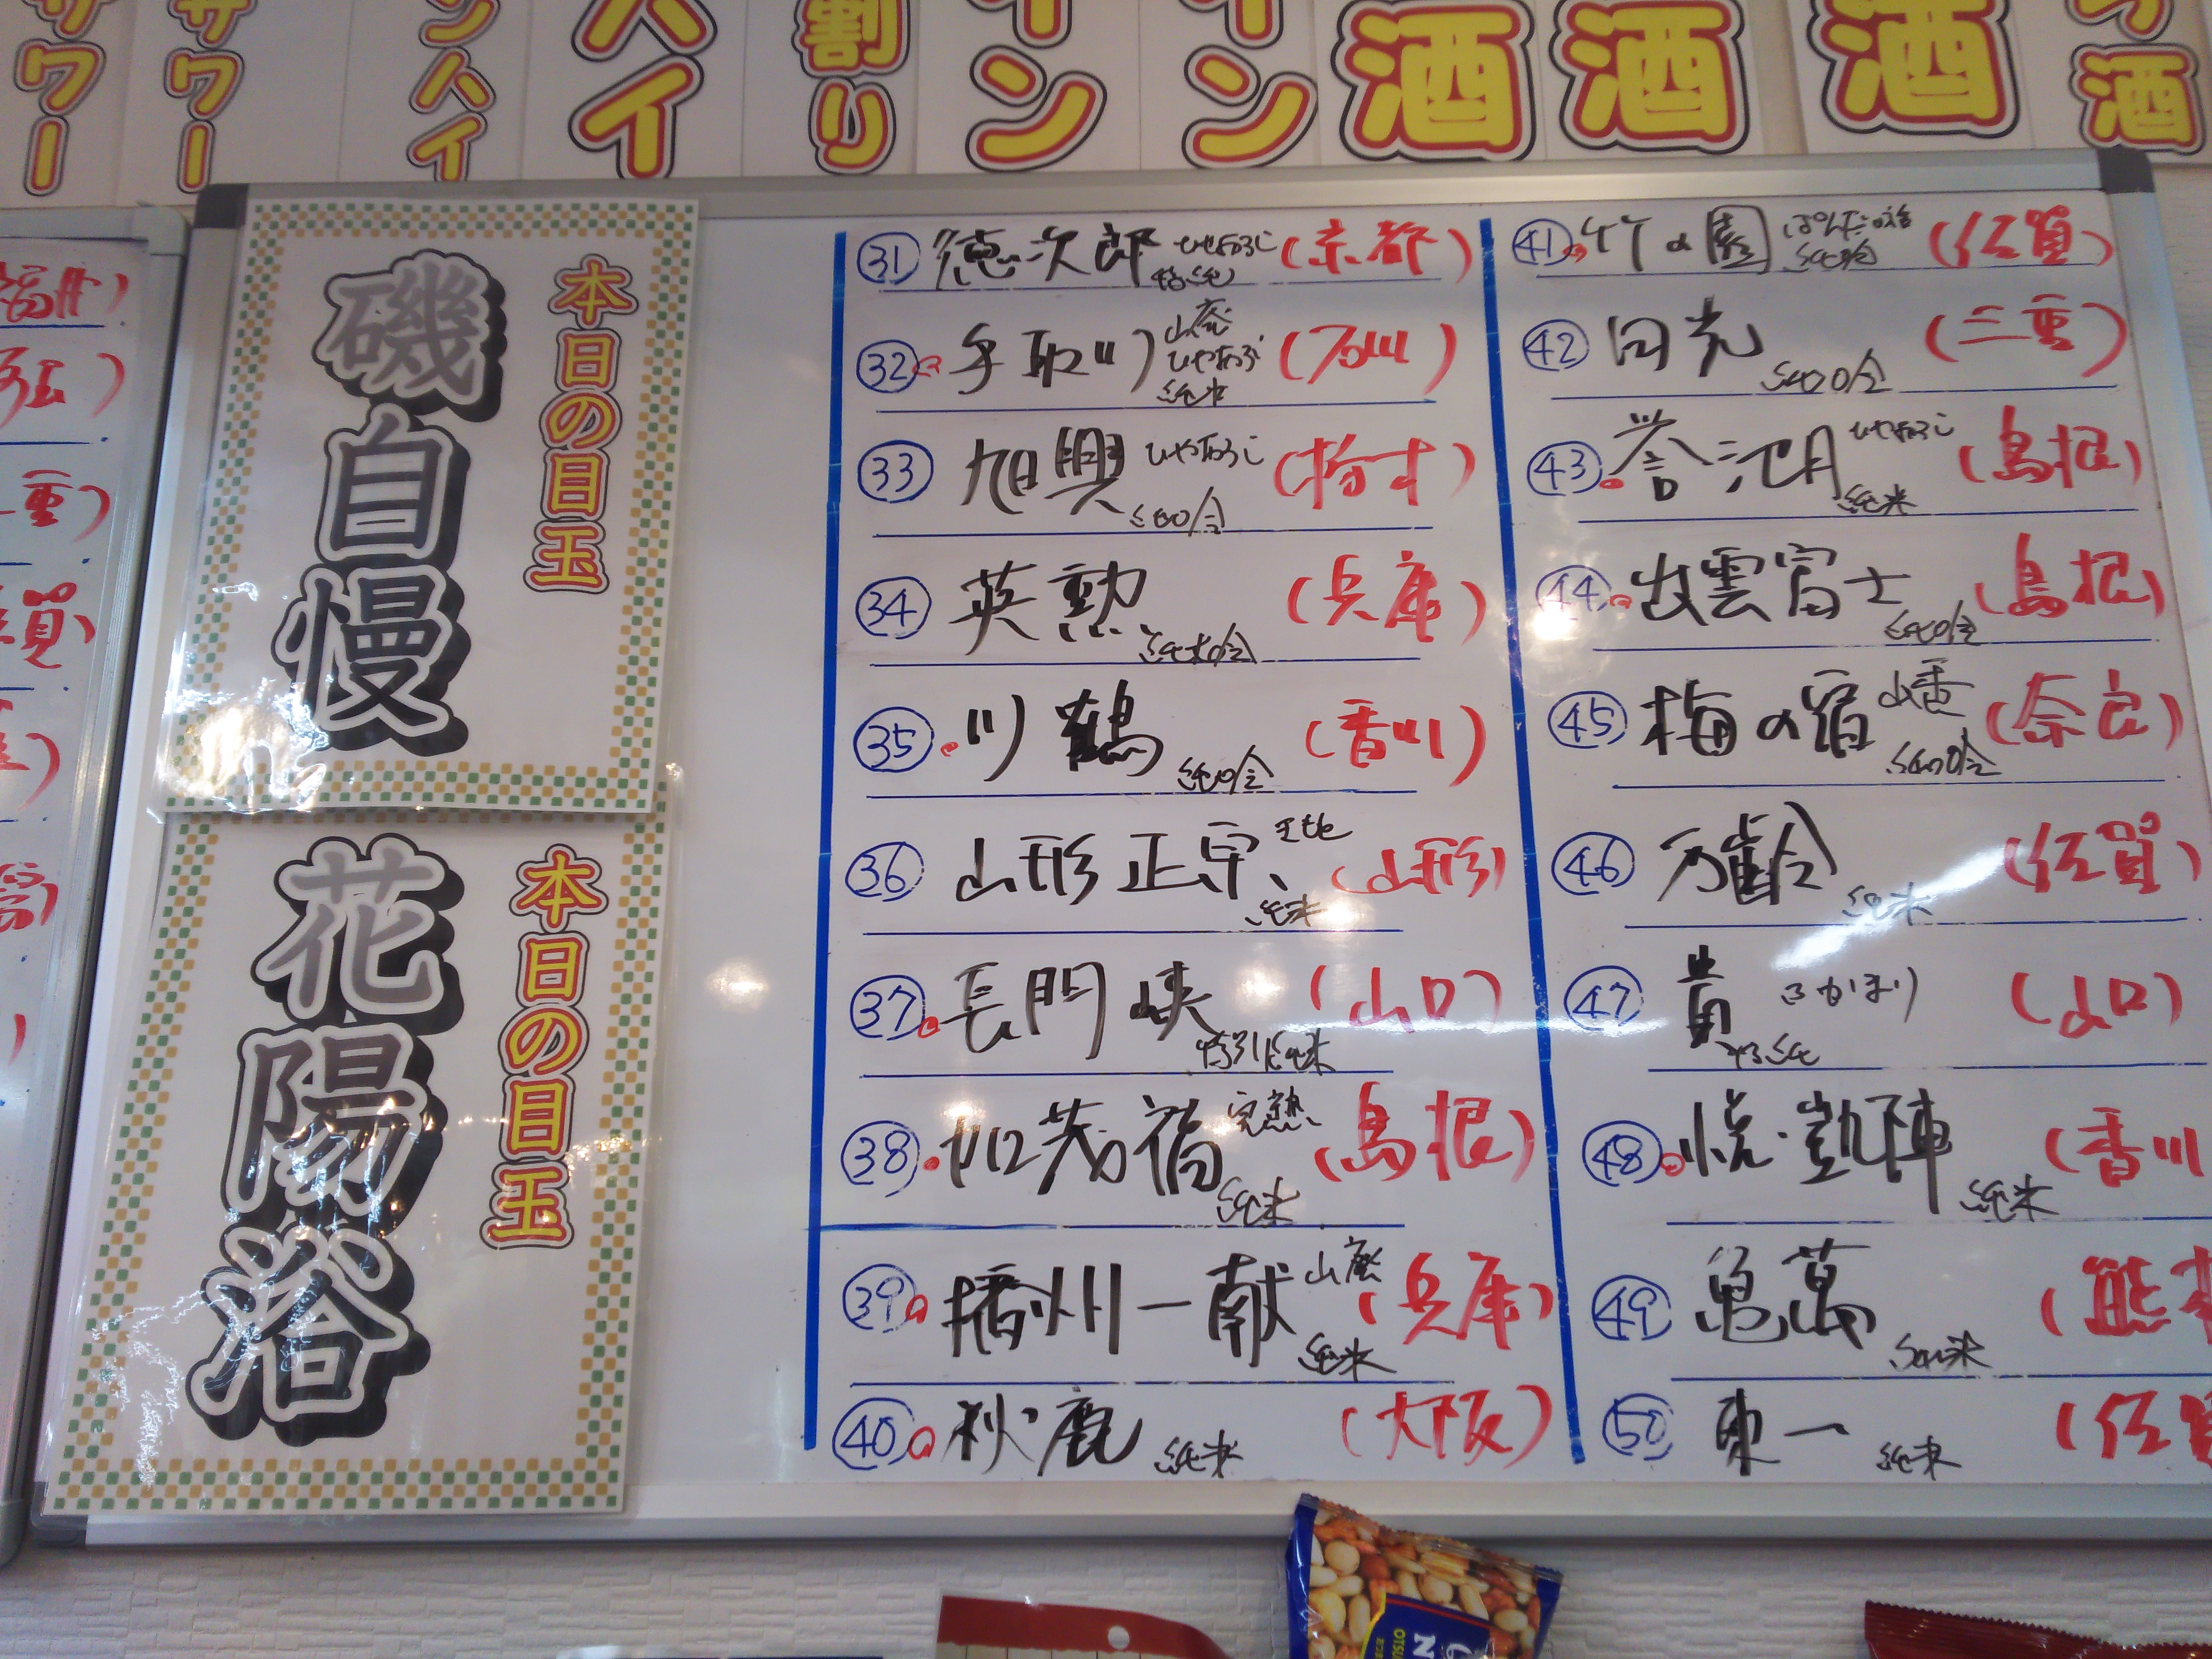 サワー
サワー
ンハイ
ハイ
割り
イン
イン
酒
酒
酒
酒
本日の目玉
磯自慢
本日の目玉
花陽浴
㉛ 徳次郎 ひやおろし 特純 (京都)
㉜ 手取川 山廃 ひやおろし 純米 (石川)
㉝ 旭興 ひやおろし 純吟 (栃木)
㉞ 英勲 純大吟 (兵庫)
㉟ 川鶴 純吟 (香川)
㊱ 山形正宗 純米 (山形)
㊲ 長門峡 特別純米 (山口)
㊳ 加茂福 完熟 純米 (島根)
㊴ 播州一献 山廃 純米 (兵庫)
㊵ 秋鹿 純米 (大阪)
㊶ 竹の園 純吟 (佐賀)
㊷ 田光 純吟 (三重)
㊸ 誉池月 ひやおろし 純米 (島根)
㊹ 出雲富士 純吟 (島根)
㊺ 梅の宿 山香 純吟 (奈良)
㊻ 万齢 純米 (佐賀)
㊼ 貴 ふかまり 特純 (山口)
㊽ 悦凱陣 純米 (香川
㊾ 亀萬 純米 (熊本
㊿ 東一 純米 (佐賀